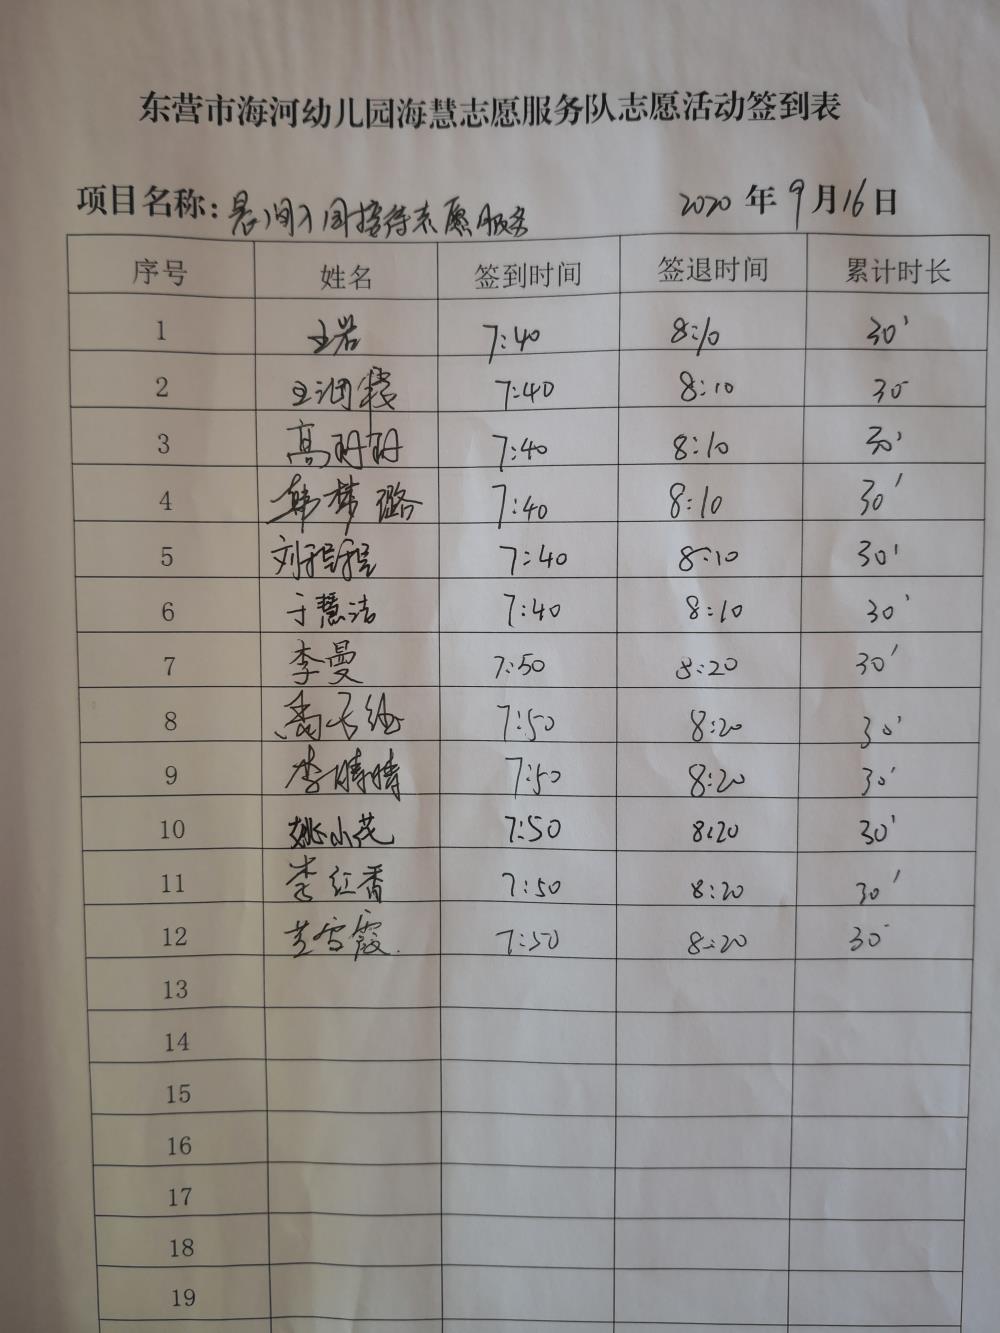 东营市海河幼儿园海慧志愿服务队志愿活动签到表
项目名称：晨间入园接待志愿服务 2020年9月16日
序号 姓名 签到时间 签退时间 累计时长
1 王岩 7:40 8:10 30'
2 王润 7:40 8:10 30'
3 高玥玥 7:40 8:10 30'
4 韩梦璐 7:40 8:10 30'
5 刘程程 7:40 8:10 30'
6 于慧洁 7:40 8:10 30'
7 李曼 7:50 8:20 30'
8 7:50 8:20 30'
9 李晴晴 7:50 8:20 30'
10 姚小花 7:50 8:20 30'
11 李红香 7:50 8:20 30'
12 雪霞 7:50 8:20 30'
13
14
15
16
17
18
19